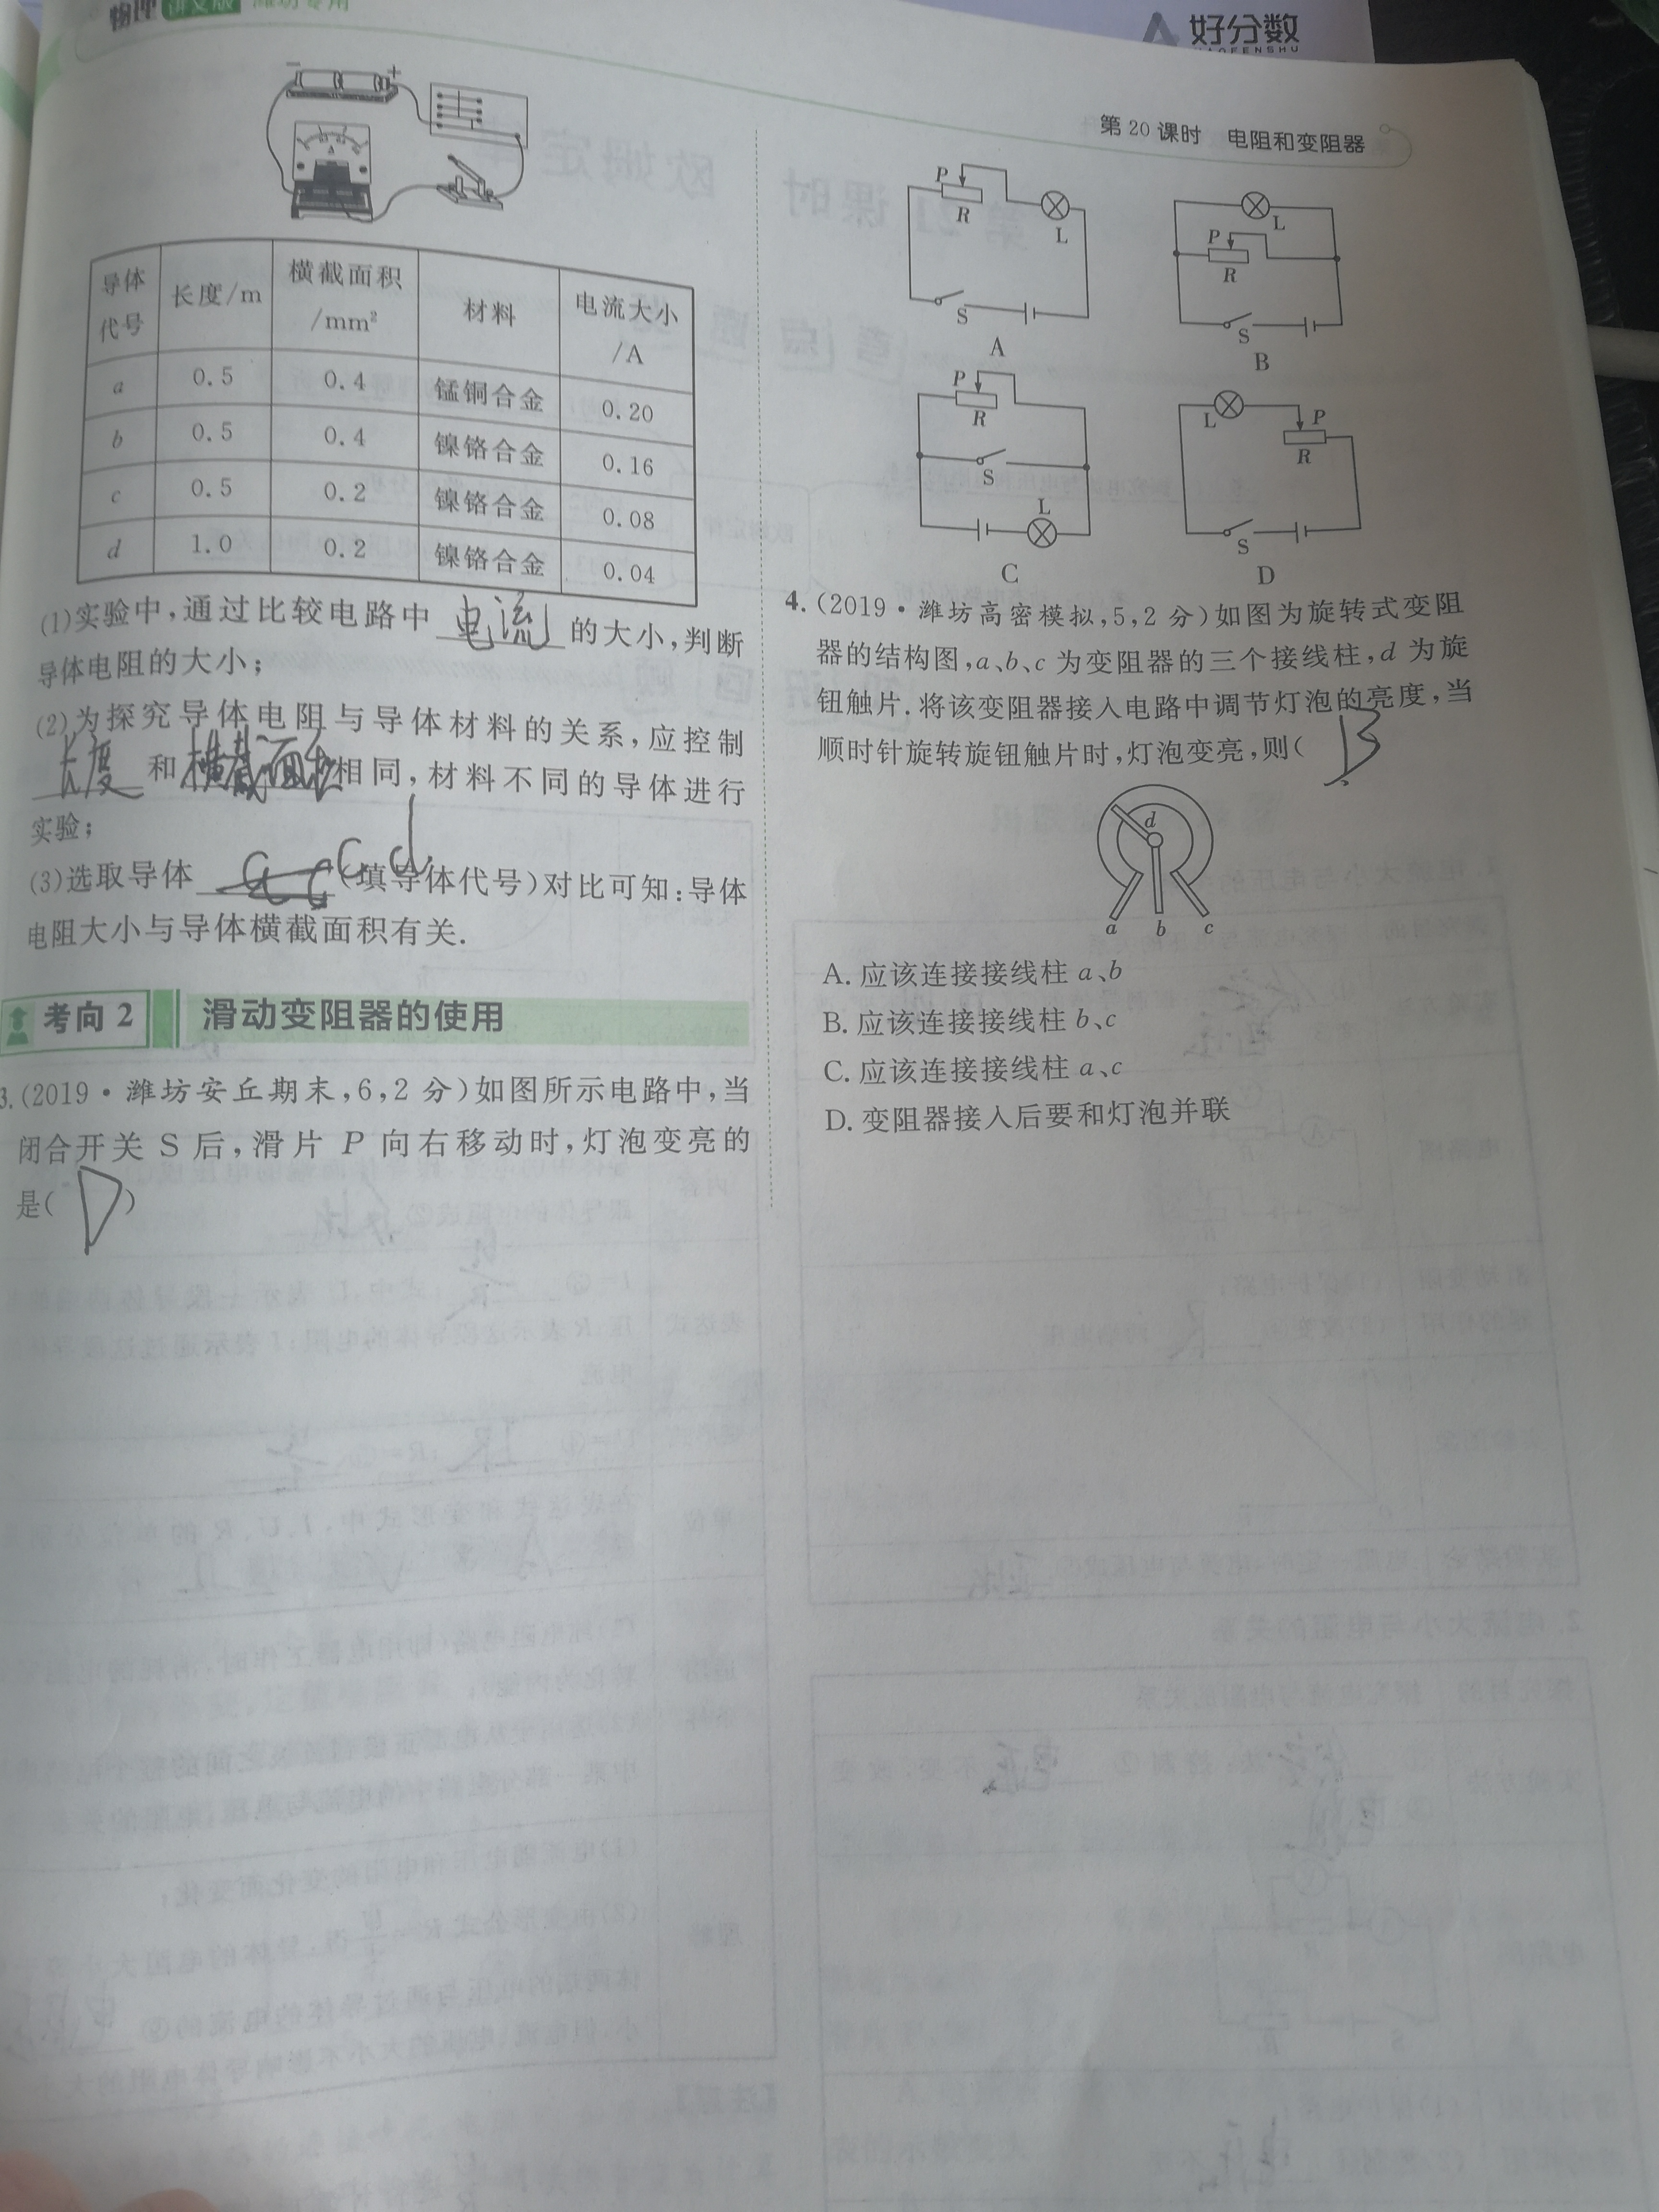 物理 讲义版 潍坊专用
好分数
HAOFENSHU
第20课时 电阻和变阻器
- +
A
导体代号 长度/m 横截面积/mm² 材料 电流大小/A
a 0.5 0.4 锰铜合金 0.20
b 0.5 0.4 镍铬合金 0.16
c 0.5 0.2 镍铬合金 0.08
d 1.0 0.2 镍铬合金 0.04
(1)实验中,通过比较电路中 电流 的大小,判断
导体电阻的大小;
(2)为探究导体电阻与导体材料的关系,应控制
长度 和 横截面积 相同,材料不同的导体进行
实验;
(3)选取导体 c d (填导体代号)对比可知:导体
电阻大小与导体横截面积有关.
考向2 滑动变阻器的使用
3.(2019·潍坊安丘期末,6,2分)如图所示电路中,当
闭合开关 S 后,滑片 P 向右移动时,灯泡变亮的
是( D )
P R L S
A
L P R S
B
P R S L
C
L P R S
D
4.(2019·潍坊高密模拟,5,2分)如图为旋转式变阻
器的结构图,a、b、c 为变阻器的三个接线柱,d 为旋
钮触片.将该变阻器接入电路中调节灯泡的亮度,当
顺时针旋转旋钮触片时,灯泡变亮,则( B
d
a b c
A.应该连接接线柱 a、b
B.应该连接接线柱 b、c
C.应该连接接线柱 a、c
D.变阻器接入后要和灯泡并联